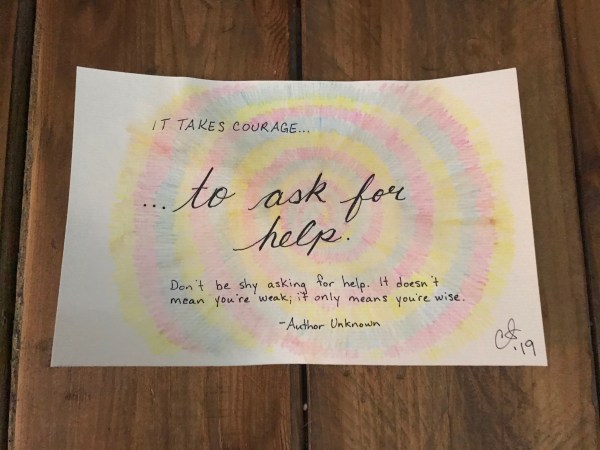 IT TAKES COURAGE...
... to ask for
help.
Don't be shy asking for help. It doesn't
mean you're weak; it only means you're wise.
-Author Unknown
CS.19